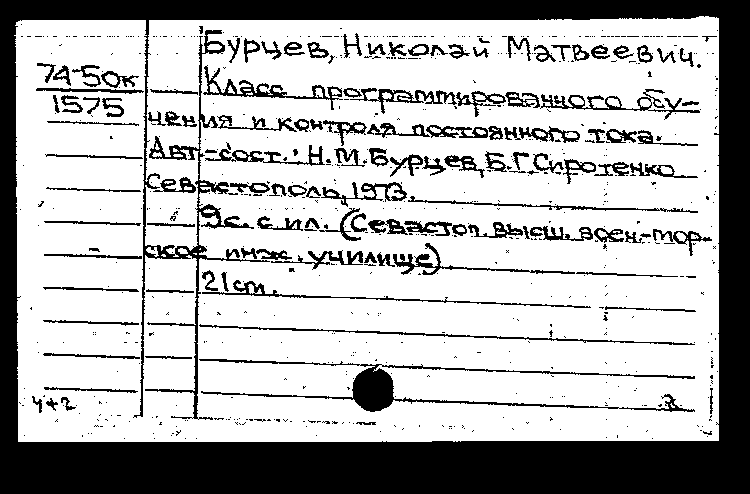 Бурцев, Николай Матвеевич.
74-50к
1575
Класс программированного обу-
чения и контроля постоянного тока.
Авт.-сост.: Н.М.Бурцев, Б.Г.Сиротенко
Севастополь, 1973.
9с. с ил. (Севастоп. высш. воен-мор-
ское инж. училище)
21cm.
4+2